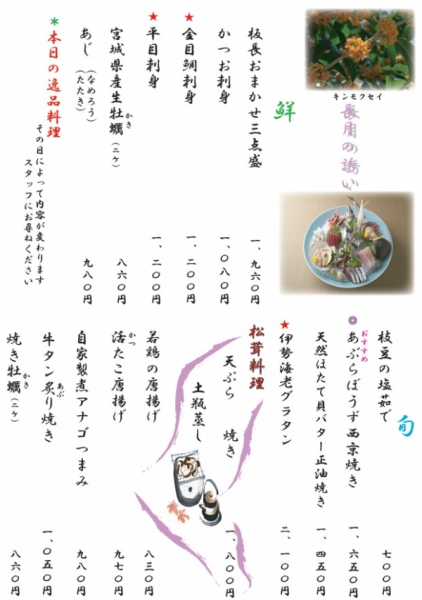 キンモクセイ
長月の誘い
鮮
板長おまかせ三点盛 一、九六〇円
かつお刺身 一、〇八〇円
★金目鯛刺身 一、二〇〇円
★平目刺身 一、二〇〇円
宮城県産生牡蠣(二ケ) 八六〇円
かき
あじ(なめろう)(たたき) 九八〇円
*本日の逸品料理
その日によって内容が変わります
スタッフにお尋ねください
旬
枝豆の塩茹で 七〇〇円
◎あぶらぼうず西京焼き 一、六五〇円
おすすめ
天然ほたて貝バター正油焼き 一、四五〇円
★伊勢海老グラタン 二、一〇〇円
松茸料理
天ぷら 焼き
土瓶蒸し
一、八〇〇円
若鶏の唐揚げ 八三〇円
活たこ唐揚げ 九七〇円
かつ
自家製煮アナゴつまみ 九八〇円
牛タン炙り焼き 一、〇五〇円
あぶ
焼き牡蠣(二ケ) 八六〇円
かき